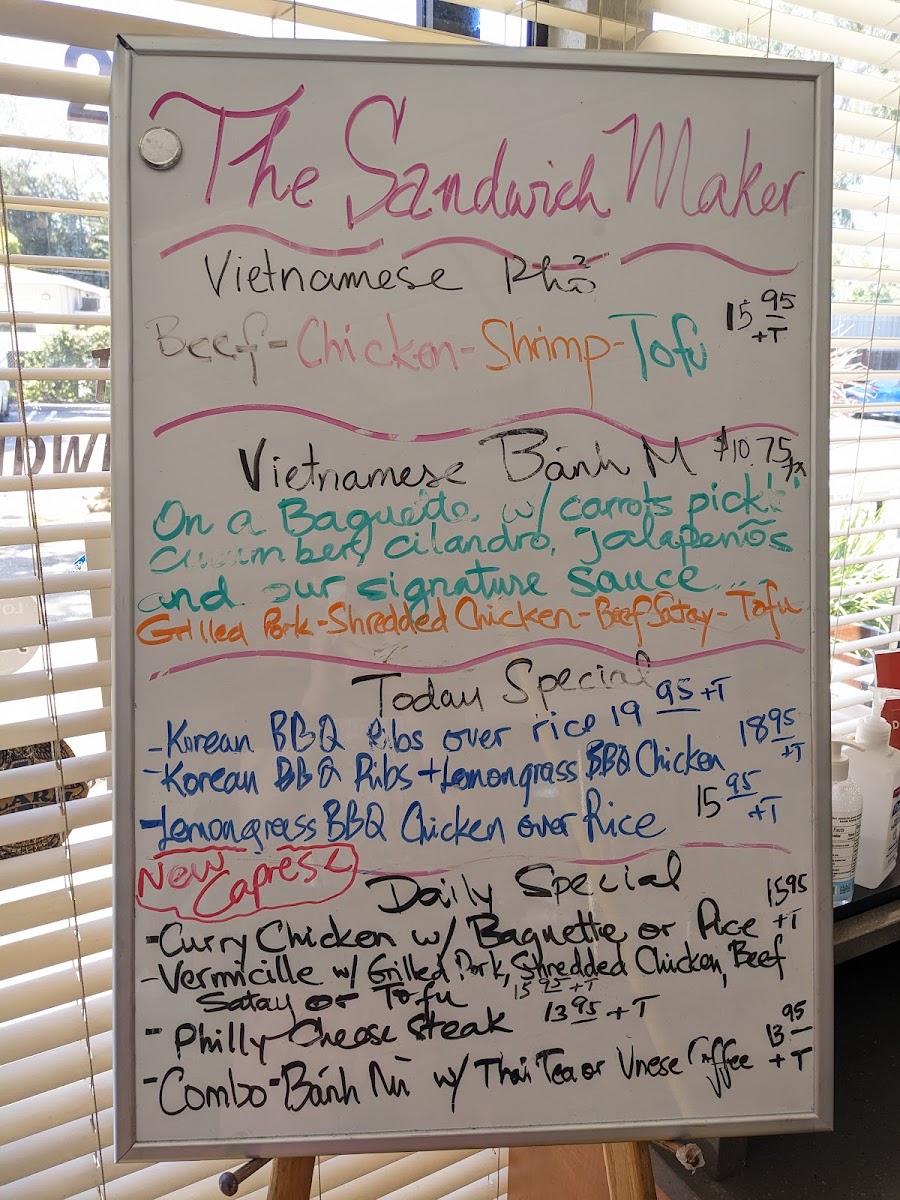 The Sandwich Maker
Vietnamese Phở
15 95 +T
Beef - Chicken - Shrimp - Tofu
Vietnamese Bánh M $10.75
On a Baguette w/ carrots pick
cucumber, cilandro, jalapeños
and our signature sauce....
Grilled Pork - Shredded Chicken - Beef Satay - Tofu
Today Special
- Korean BBQ Ribs over rice 19 95 +T
- Korean BBQ Ribs + Lemongrass BBQ Chicken 18 95 +T
- Lemongrass BBQ Chicken over Rice 15 95 +T
New Caprese
Daily Special
- Curry Chicken w/ Baguette or Rice 15 95 +T
- Vermicille w/ Grilled Pork, Shredded Chicken, Beef
Satay or Tofu 15 95 +T
- Philly Cheese Steak 13 95 + T
- Combo - Bánh Mì w/ Thai Tea or Vnese Coffee 13 95 + T